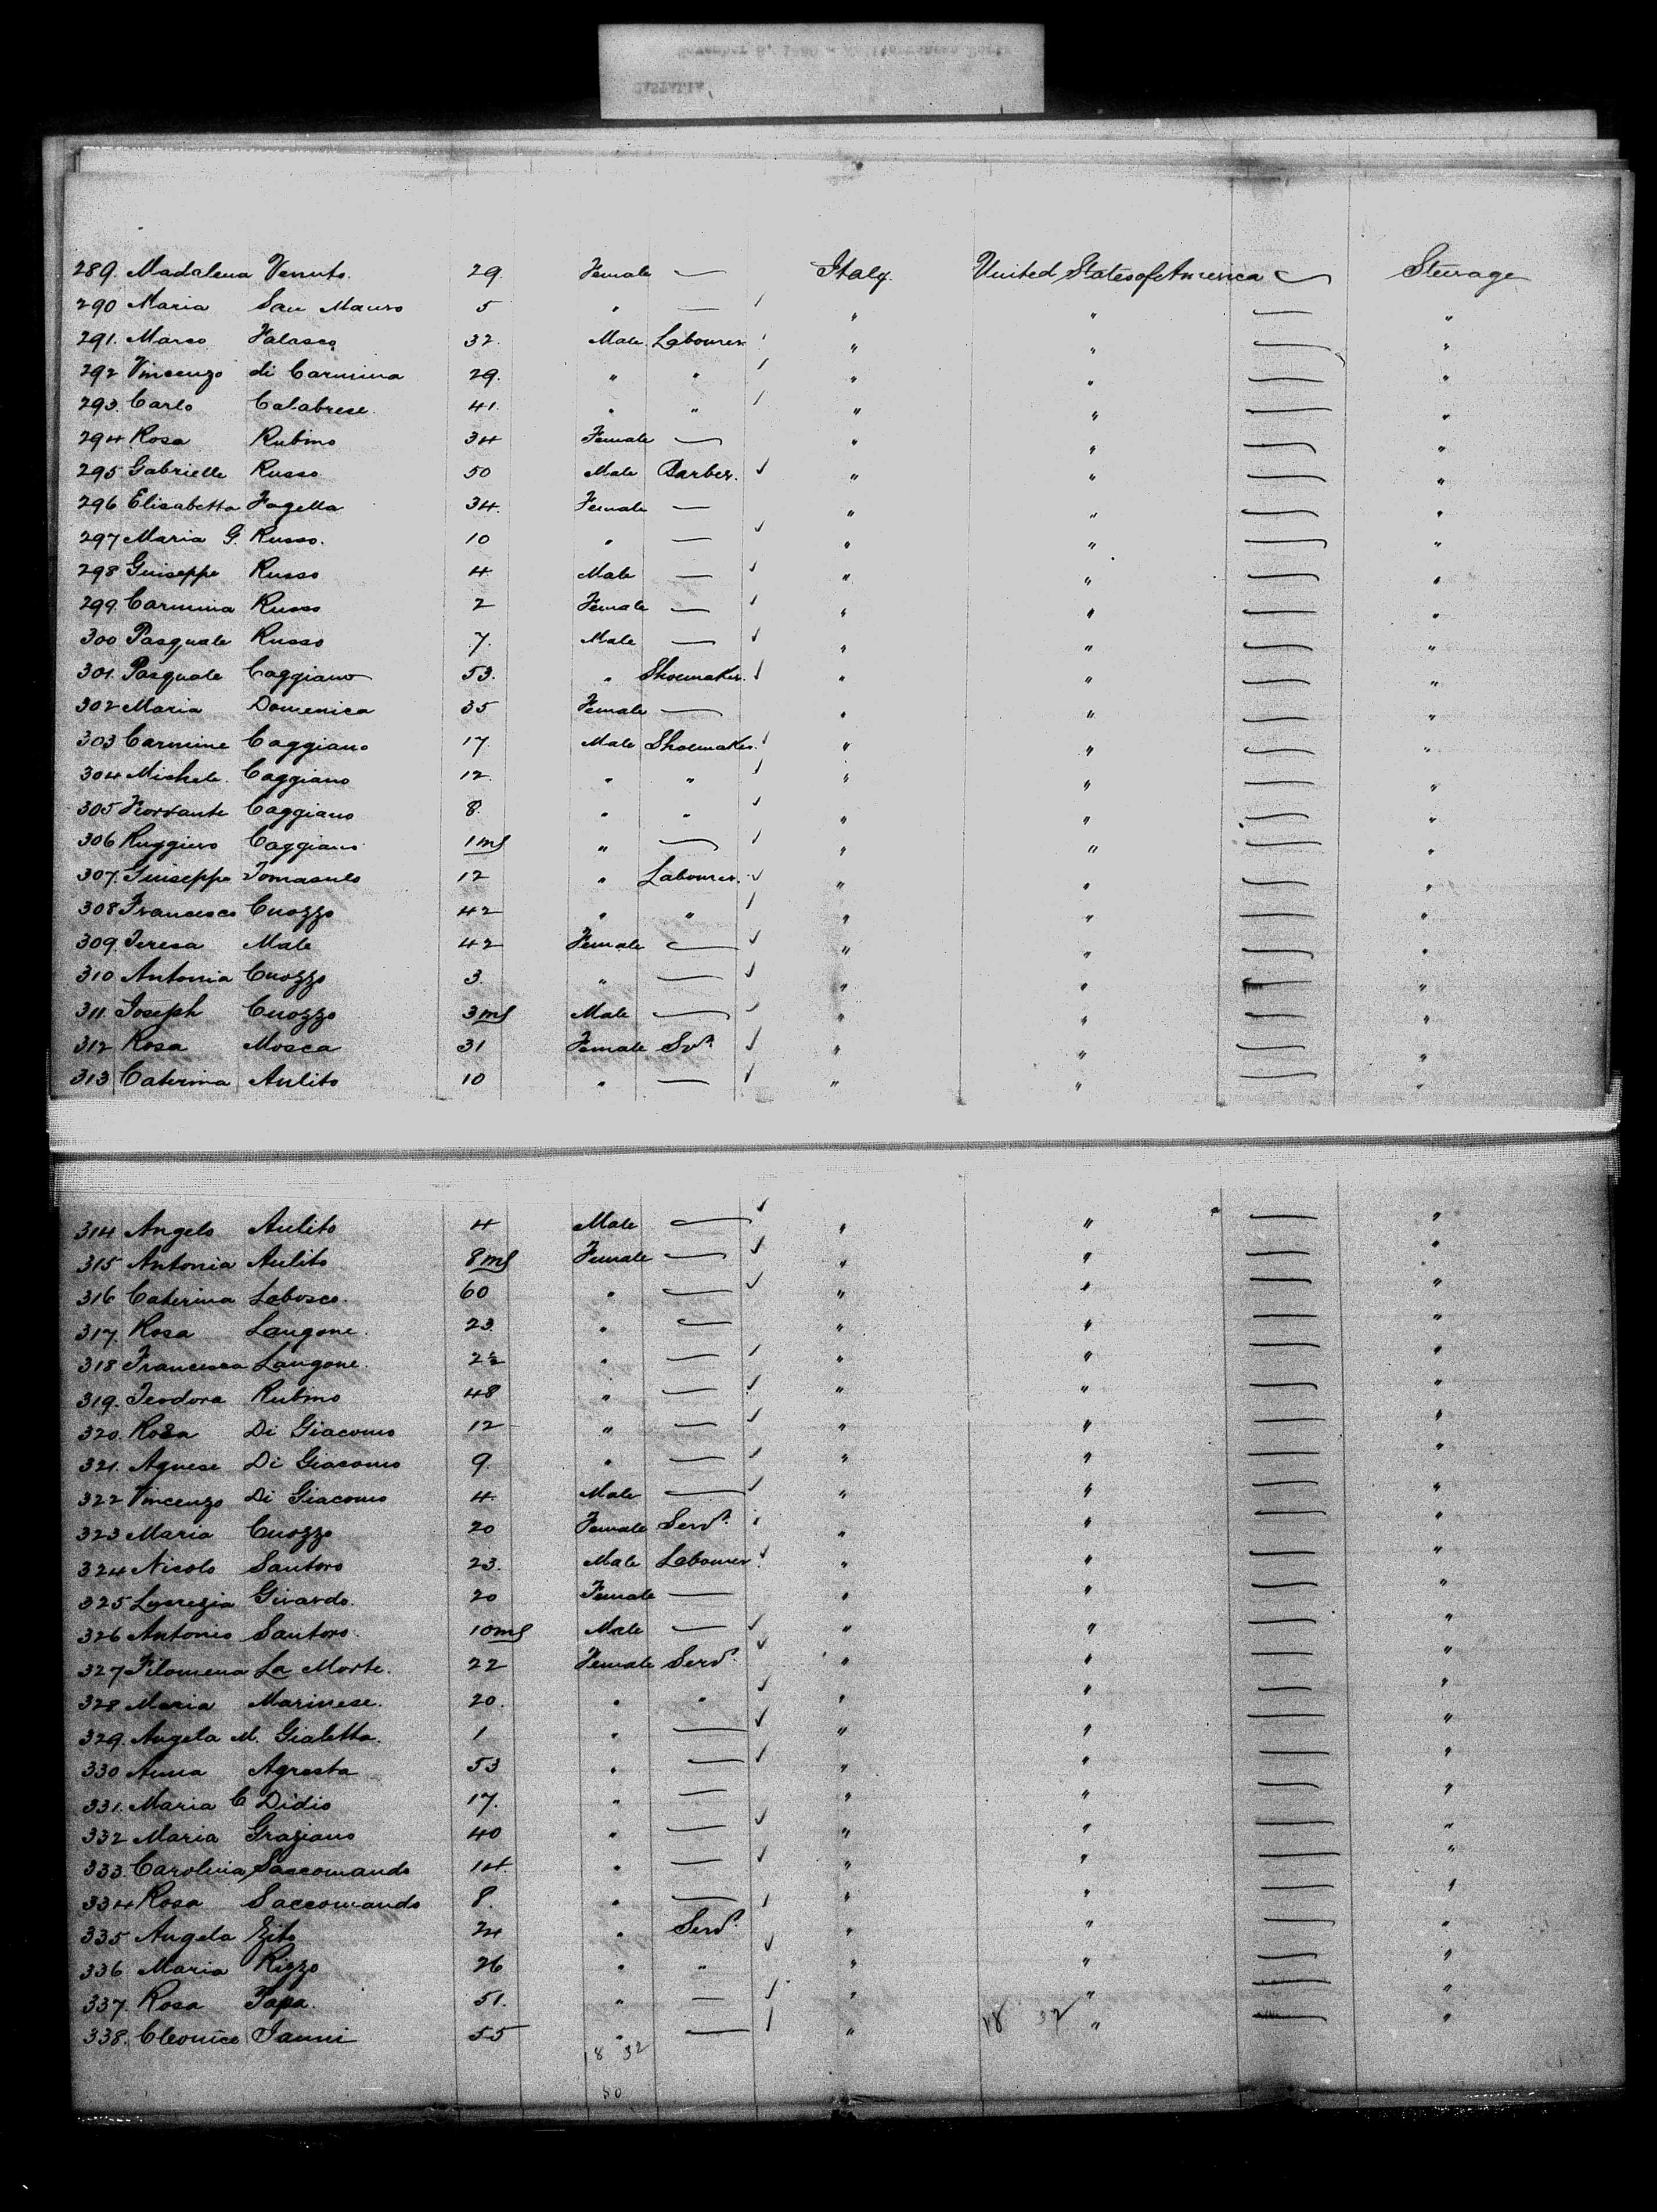 289. Madalena Venuto. 29. Female — Italy. United States of America — Steerage
290 Maria San Mauro 5 " — " " — "
291. Marco Falasca 32. Male Labourer " " — "
292 Vincenzo di Carmina 29. " " " " — "
293. Carlo Calabrese. 41. " " " " — "
294 Rosa Rubino 34 Female — " " — "
295 Gabrielle Russo 50 Male Barber. " " — "
296 Elisabetta Fagella 34. Female — " " — "
297 Maria G. Russo. 10 " — " " — "
298 Guiseppe Russo 4 Male — " " — "
299. Carmina Russo 2 Female — " " — "
300 Pasquale Russo 7. Male — " " — "
301. Pasquale Caggiano 53. " Shoemaker. " " — "
302 Maria Domenica 35 Female — " " — "
303 Carmine Caggiano 17. Male Shoemaker. " " — "
304 Michele. Caggiano 12. " " " " — "
305 Caggiano 8. " " " " — "
306 Ruggiero Caggiano 1 ms " — " " — "
307. Guiseppe Tomasulo 12 " Labourer. " " — "
308 Francesco Cuozzo 42 " " " " — "
309. Teresa Male 42 Female — " " — "
310 Antonia Cuozzo 3. " — " " — "
311. Joseph Cuozzo 3 ms Male — " " — "
312 Rosa Mosca 31 Female Svt. " " — "
313 Caterina Aulito 10 " — " " — "
314 Angelo Aulito 4 Male — " " — "
315 Antonia Aulito 8 ms Female — " " — "
316 Caterina Labosco. 60 " — " " — "
317. Rosa Langone. 23. " — " " — "
318 Francesca Langone. 2½ " — " " — "
319. Teodora Rubino 48 " — " " — "
320. Rosa Di Giacomo 12 " — " " — "
321. Agnese Di Giacomo 9. " — " " — "
322 Vincenzo Di Giacomo 4. Male — " " — "
323 Maria Cuozzo 20 Female Servt. " " — "
324 Nicolo Santoro 23. Male Labourer. " " — "
325 Lucrezia Girardo. 20 Female — " " — "
326 Antonio Santoro. 10 ms Male — " " — "
327 Filomena La Morte. 22 Female Servt. " " — "
328 Maria Marinese. 20. " " " " — "
329. Angela M. Gialetta. 1 " — " " — "
330 Anna Agresta 53 " — " " — "
331. Maria C Didio 17. " — " " — "
332 Maria Graziano 40 " — " " — "
333. Carolina Saccomando 14. " — " " — "
334 Rosa Saccomando 8. " — " " — "
335 Angela Zito 24 " Servt. " " — "
336 Maria Rizzo 26 " " " " — "
337. Rosa Papa. 51. " — " " — "
18 32
338. Cleonice Ianni 55 " — " " — "
18 32
50